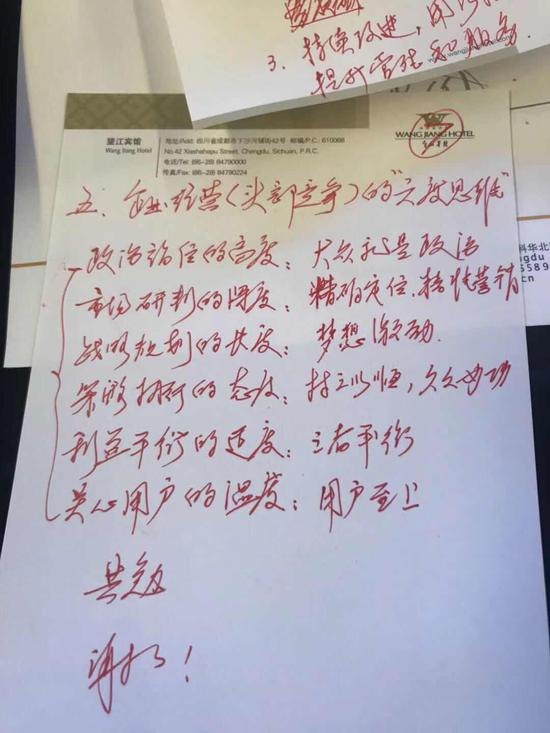 3、持续改进，用
提升管理和服务.
www.
望江宾馆
Wang Jiang Hotel
地址/Add: 四川省成都市下沙河铺街42号 邮编/P.C.: 610066
No.42 Xiashahepu Street, Chengdu, Sichuan, P.R.C.
电话/Tel: (86-28) 84790000
传真/Fax: (86-28) 84780224
WANG JIANG HOTEL
五、企业经营(头部竞争)的"六度思维"
政治站位的高度：大众就是政治
市场研判的深度：精确定位、精准营销
战略规划的长度：梦想激励.
策略执行的态度：持之以恒，久久为功
利益平衡的适度：三者平衡
关心用户的温度：用户至上
共勉
科华北
gdu
5589
.cn